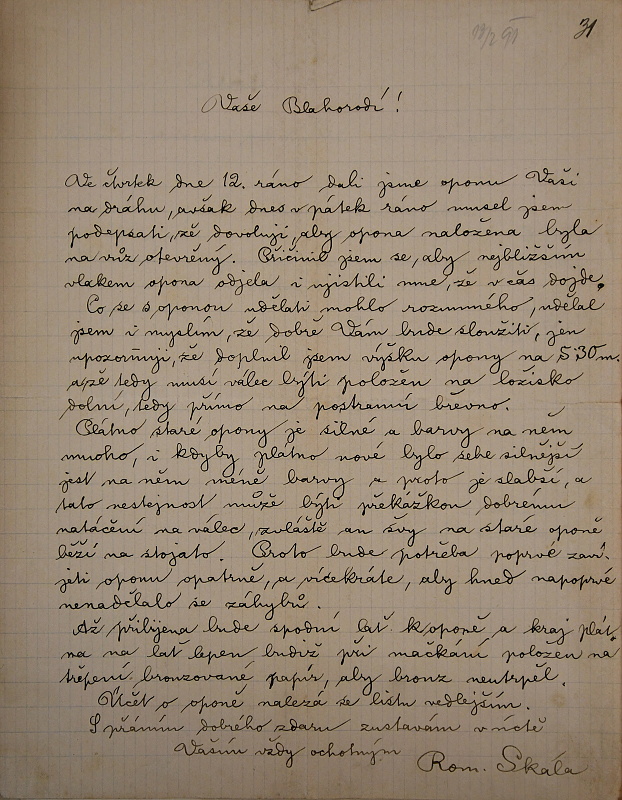 31
Vaše Blahorodí!
Ve čtvrtek dne 12. ráno dali jsme oponu Vaši
na dráhu, avšak dnes v pátek ráno musel jsem
podepsati, že dovoluji, aby opona naložena byla
na vůz otevřený. Přičinil jsem se, aby nejbližším
vlakem opona odjela i ujistili mne, že v čas dojde.
Co se s oponou udělati mohlo rozumného, udělal
jsem i myslím, že dobře Vám bude sloužiti, jen
upozorňuji, že doplnil jsem výšku opony na 5·30 m.
a že tedy musí válec býti položen na ložisko
dolní, tedy přímo na postranní břevno.
Plátno staré opony je silné a barvy na něm
mnoho, i kdyby plátno nové bylo sebe silnější
jest na něm méně barvy a proto je slabší, a
tato nestejnost může býti překážkou dobrému
natáčení na válec, zvláště an švy na staré oponě
běží na stojato. Proto bude potřeba poprvé zaví-
jeti oponu opatrně, a vícekráte, aby hned napoprvé
nenadělalo se záhybů.
Až přibijena bude spodní lať k oponě, a kraj plát-
na na lať lepen budiž při mačkání položen na
třepení bronzované papír, aby bronz neutrpěl.
Účet o oponě nalezá se listu vedlejším.
S přáním dobrého zdaru zustavám v úctě
Vaším vždy ochotným
Rom. Skála